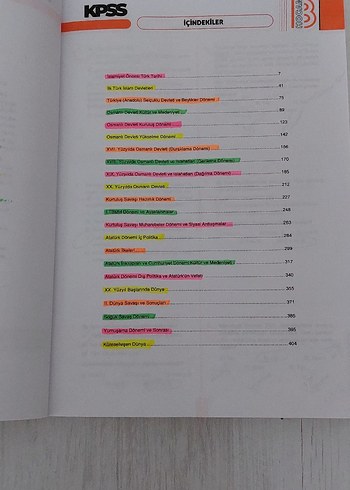 KPSS
İÇİNDEKİLER
İslamiyet Öncesi Türk Tarihi 7
İlk Türk İslam Devletleri 41
Türkiye (Anadolu) Selçuklu Devleti ve Beylikler Dönemi 75
Osmanlı Devleti Kültür ve Medeniyeti 89
Osmanlı Devleti Kuruluş Dönemi 123
Osmanlı Devleti Yükselme Dönemi 142
XVII. Yüzyılda Osmanlı Devleti (Duraklama Dönemi) 156
XVIII. Yüzyılda Osmanlı Devleti ve Islahatları (Gerileme Dönemi) 170
XIX. Yüzyılda Osmanlı Devleti ve Islahatları (Dağılma Dönemi) 185
XX. Yüzyılda Osmanlı Devleti 212
Kurtuluş Savaşı Hazırlık Dönemi 227
I. TBMM Dönemi ve Ayaklanmalar 248
Kurtuluş Savaşı Muharebeler Dönemi ve Siyasi Antlaşmalar 263
Atatürk Dönemi İç Politika 284
Atatürk İlkeleri 299
Atatürk İnkılapları ve Cumhuriyet Dönemi Kültür ve Medeniyeti 317
Atatürk Dönemi Dış Politika ve Atatürk'ün Vefatı 340
XX. Yüzyıl Başlarında Dünya 355
II. Dünya Savaşı ve Sonuçları 371
Soğuk Savaş Dönemi 386
Yumuşama Dönemi ve Sonrası 395
Küreselleşen Dünya 404